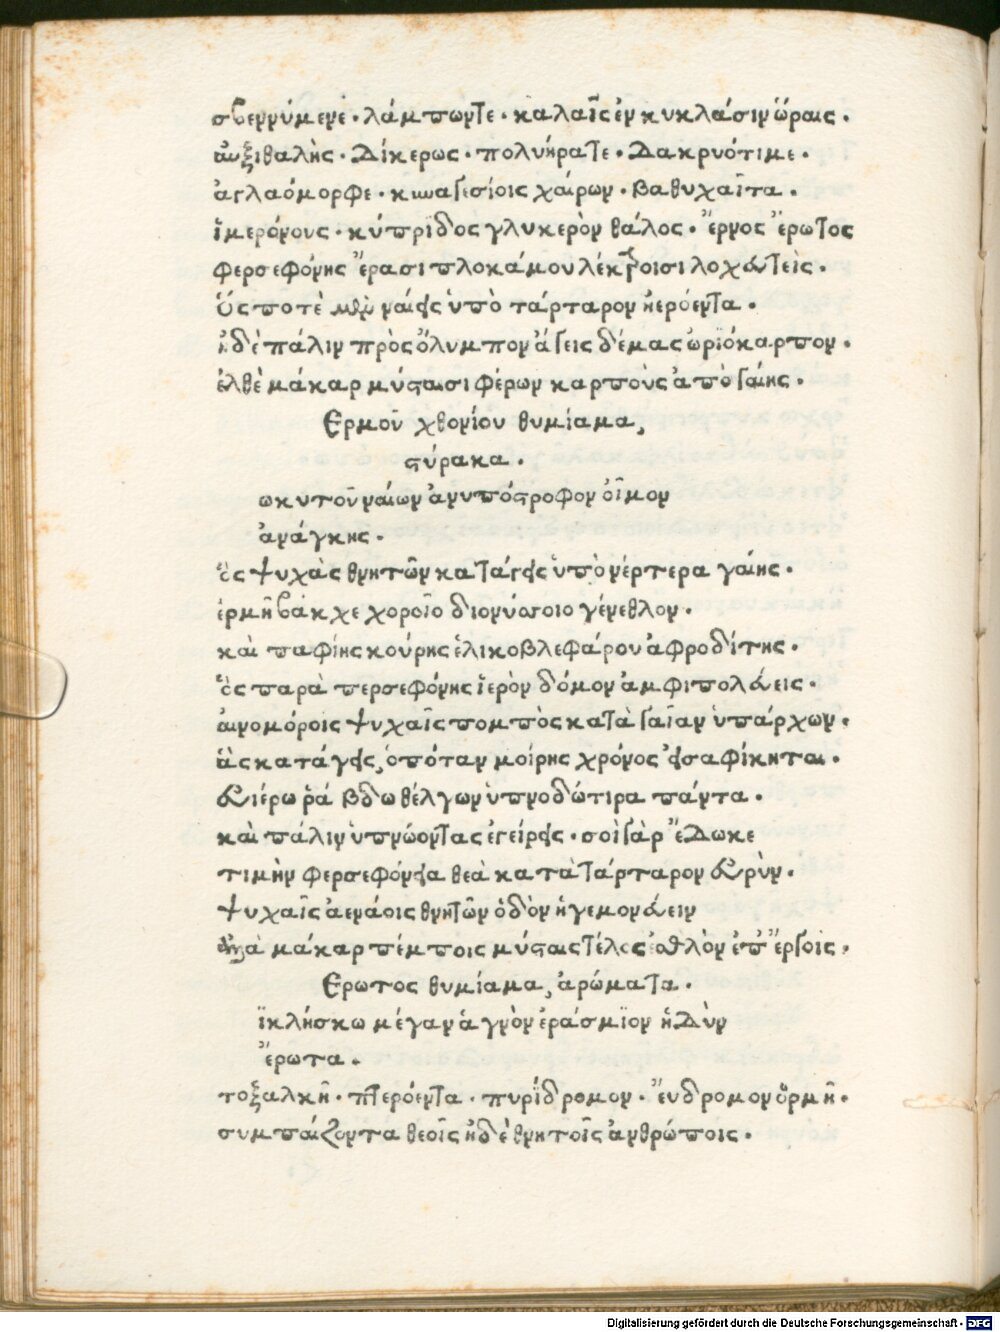 σβεννύμενε· λάμπωντε· καλαῖς ἐν κυκλάσιν ὥραις·
αὐξιθαλὴς· Δίκερως· πολυήρατε· Δακρυότιμε·
ἀγλαόμορφε· κυναγεσίοις χαίρων· βαθυχαῖτα·
ἱμερόνους· κύπριδος γλυκερὸν θάλος· ἔρνος ἔρωτος
φερσεφόνης ἐρασιπλοκάμου λέκτροισι λοχευτείς·
ὅς ποτὲ μὲν ναίεις ὑπὸ τάρταρον ἠερόεντα·
ἠδὲ πάλιν πρὸς ὄλυμπον ἄγεις δέμας ὡριόκαρπον·
ἐλθὲ μάκαρ μύσταισι φέρων καρποὺς ἀπὸ γαίης·
Ερμοῦ χθονίου θυμίαμα,
στύρακα·
ωκυτοῦ ναίων ἀνυπόστροφον οἶμον
ἀνάγκης·
ὃς ψυχὰς θνητῶν κατάγεις ὑπὸ νέρτερα γαίης·
ἑρμῆ βάκχε χοροῖο διονύσοιο γένεθλον·
καὶ παφίης κούρης ἑλικοβλεφάρου ἀφροδίτης·
ὃς παρὰ περσεφόνης ἱερὸν δόμον ἀμφιπολεύεις·
αἰνομόροις ψυχαῖς πομπὸς κατὰ γαῖαν ὑπάρχων·
ἃς κατάγεις, ὁπόταν μοίρης χρόνος εἰσαφίκηται·
εὐιέρω ῥάβδω θέλγων ὑπνοδώτιρα πάντα·
καὶ πάλιν ὑπνώοντας ἐγείρεις· σοὶ γὰρ ἔδωκε
τιμὴν φερσεφόνεια θεὰ κατὰ τάρταρον εὐρὺν·
ψυχαῖς ἀενάοις θνητῶν ὁδὸν ἡγεμονεύειν
ἀλλὰ μάκαρ πέμποις μύσταις τέλος ἐσθλὸν ἐπ' ἔργοις·
Ερωτος θυμίαμα, ἀρώματα·
ϊκλήσκω μέγαν ἁγνὸν ἐράσμϊον ἡΔὺν
ἔρωτα·
τοξαλκῆ· πτερόεντα· πυρίδρομον· εὔδρομον ὁρμῆ·
συμπαίζοντα θεοῖς ἠδὲ θνητοῖς ἀνθρώποις·
Digitalisierung gefördert durch die Deutsche Forschungsgemeinschaft - DFG